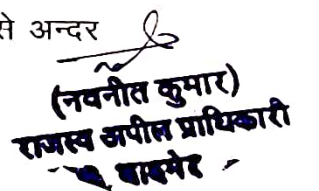 से अन्दर
(नवनीत कुमार)
राजस्व अपील प्राधिकारी
बाडमेर